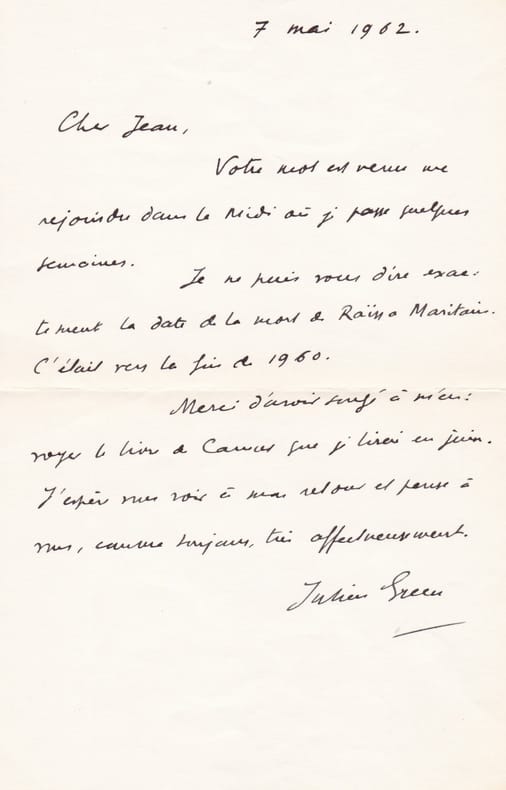 7 mai 1962.
Cher Jean,
Votre mot est venu me
rejoindre dans le Midi où je passe quelques
semaines.
Je ne puis vous dire exac-
tement la date de la mort de Raïssa Maritain.
C'était vers la fin de 1960.
Merci d'avoir songé à m'en-
voyer le livre de Camus que je lirai en juin.
J'espère vous voir à mon retour et pense à
vous, comme toujours, très affectueusement.
Julien Green